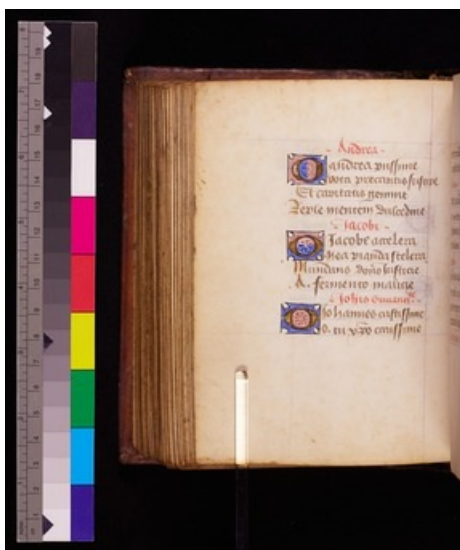 Andrea
O andrea piissime
vota precantis suscipe
Et caritatis gemine
Reple mentem dulcedine
Jacobi
O Jacobe accelera
mea pianda scelera
Mundans
A fermento malicie
Johis
O Johannes castissime
O. tu xpo carissime